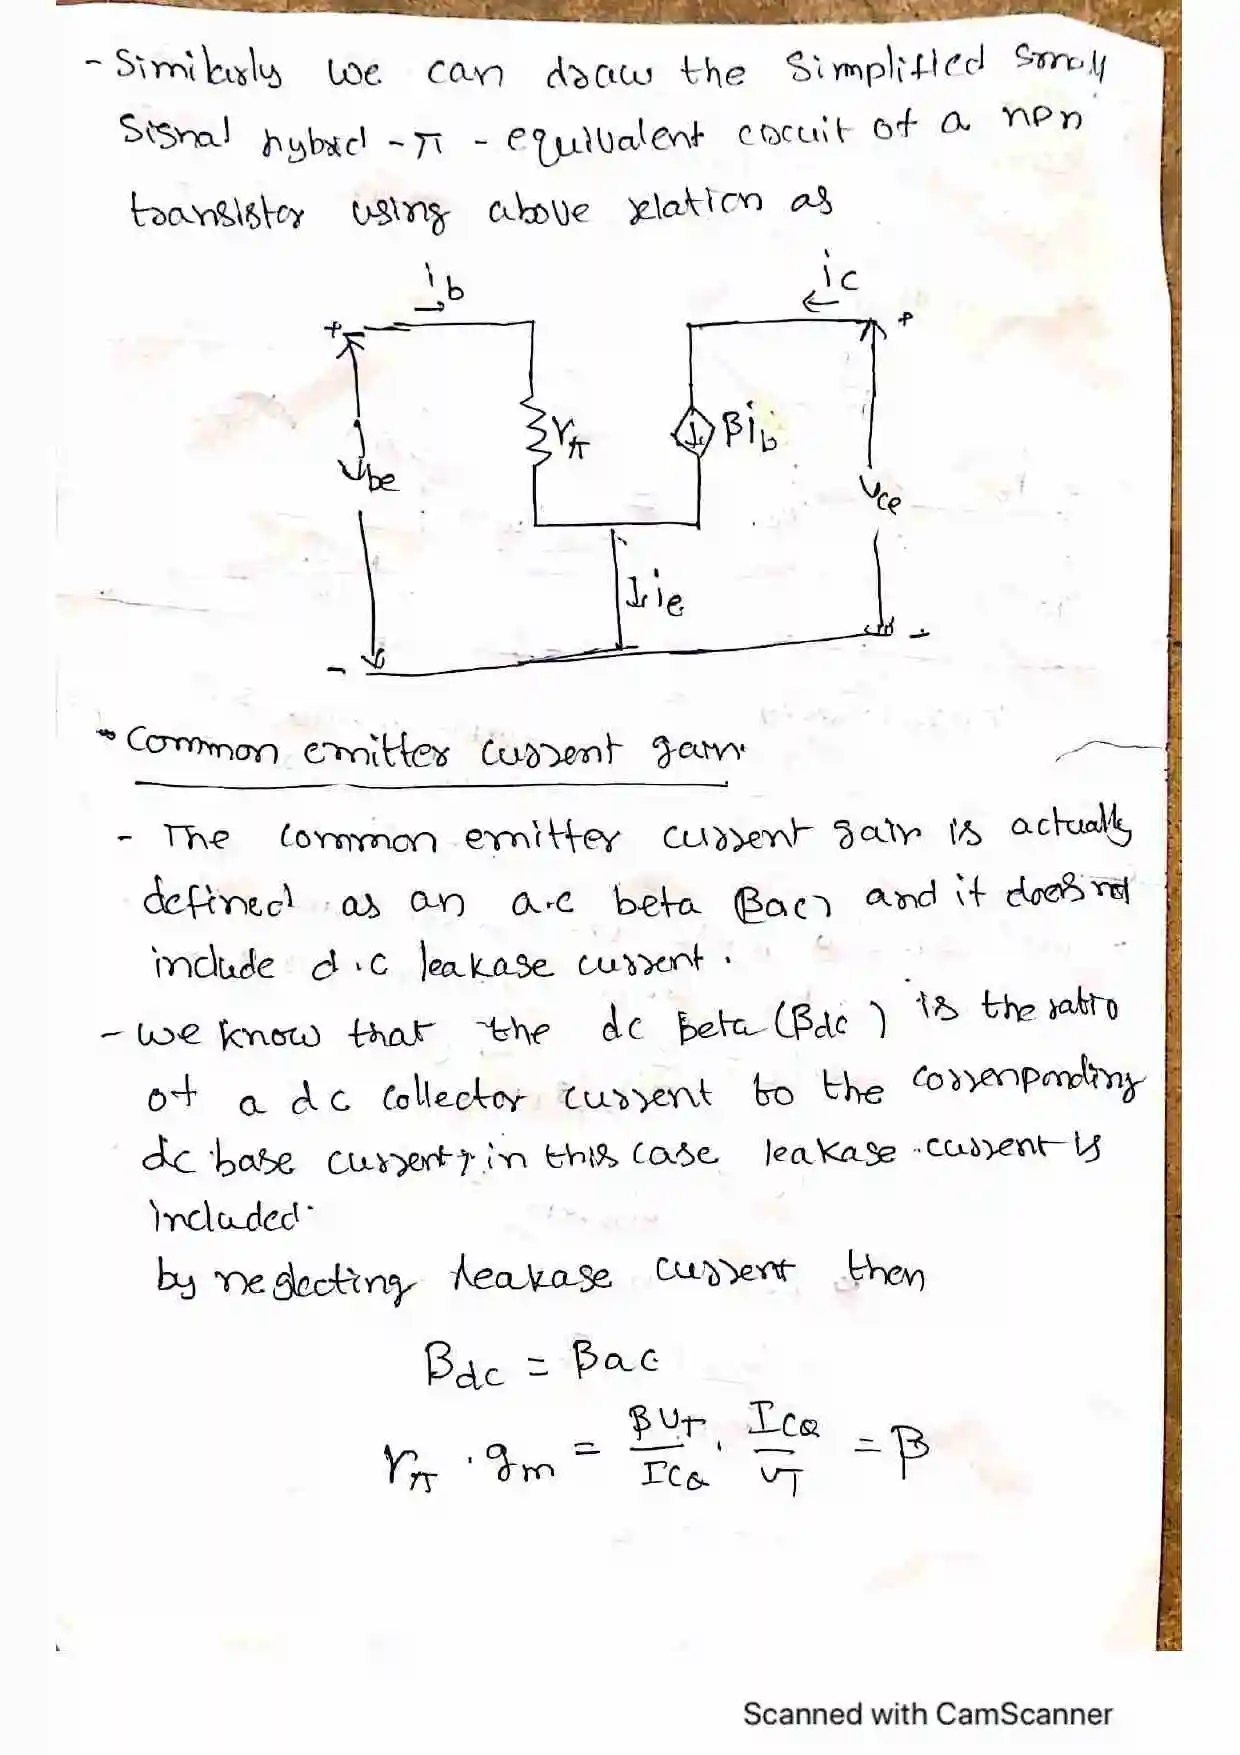 - Similarly we can draw the simplified small
signal hybrid - π - equivalent circuit of a npn
transistor using above relation as
ib
ic
+
+
rπ
βib
Vbe
Vce
ie
-
-
Common emitter current gain
- The common emitter current gain is actually
defined as an a.c beta (βac) and it does not
include d.c leakase current.
- we know that the dc beta (βdc) is the ratio
of a dc collector current to the corresponding
dc base current, in this case leakase current is
included.
by neglecting leakase current then
βdc = βac
rπ . gm = βVT/ICQ . ICQ/VT = β
Scanned with CamScanner